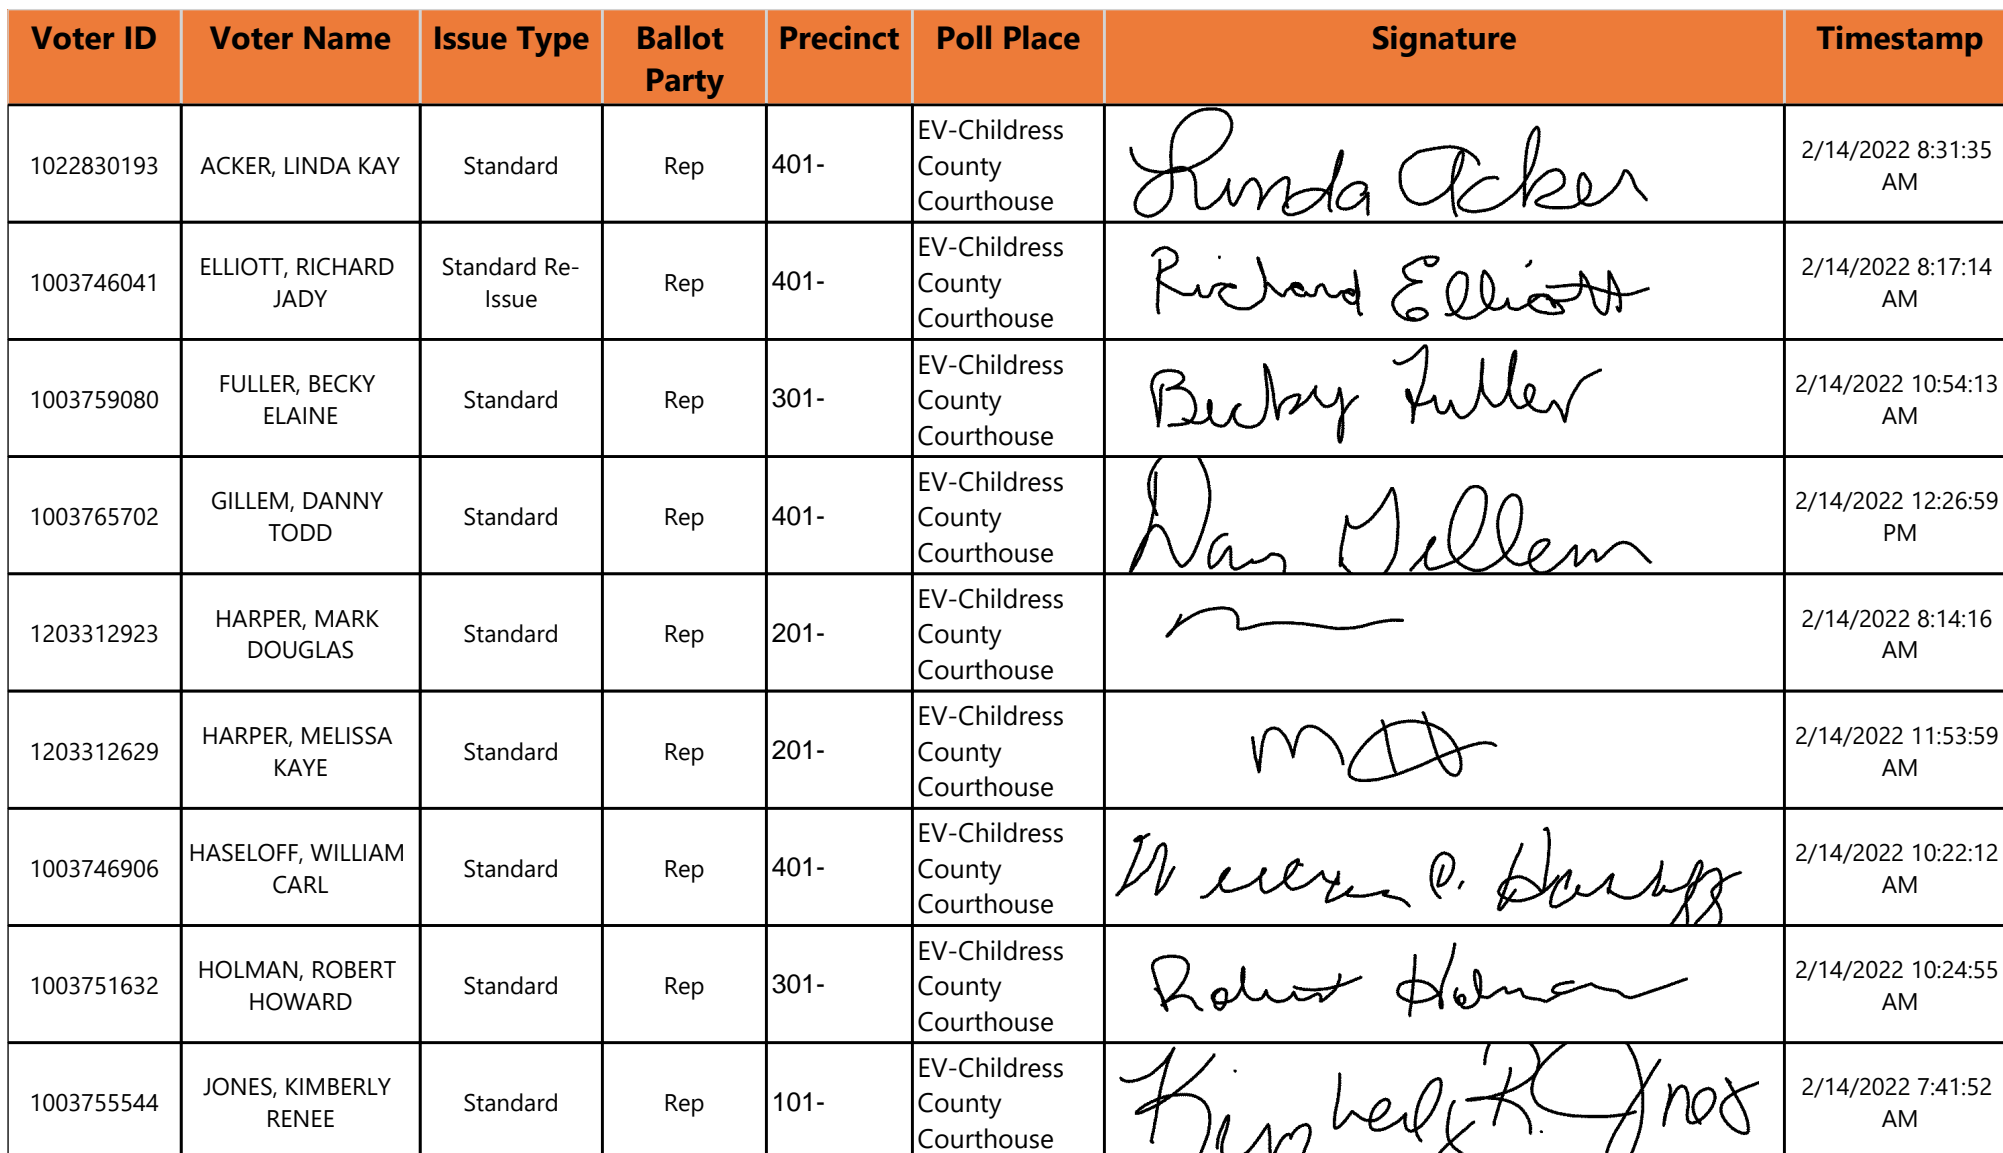 Voter ID Voter Name Issue Type Ballot Party Precinct Poll Place Signature Timestamp
1022830193 ACKER, LINDA KAY Standard Rep 401- EV-Childress County Courthouse Linda Acker 2/14/2022 8:31:35 AM
1003746041 ELLIOTT, RICHARD JADY Standard Re-Issue Rep 401- EV-Childress County Courthouse Richard Elliott 2/14/2022 8:17:14 AM
1003759080 FULLER, BECKY ELAINE Standard Rep 301- EV-Childress County Courthouse Becky Fuller 2/14/2022 10:54:13 AM
1003765702 GILLEM, DANNY TODD Standard Rep 401- EV-Childress County Courthouse Dan Gillem 2/14/2022 12:26:59 PM
1203312923 HARPER, MARK DOUGLAS Standard Rep 201- EV-Childress County Courthouse 2/14/2022 8:14:16 AM
1203312629 HARPER, MELISSA KAYE Standard Rep 201- EV-Childress County Courthouse 2/14/2022 11:53:59 AM
1003746906 HASELOFF, WILLIAM CARL Standard Rep 401- EV-Childress County Courthouse William C. Haseloff 2/14/2022 10:22:12 AM
1003751632 HOLMAN, ROBERT HOWARD Standard Rep 301- EV-Childress County Courthouse Robert Holman 2/14/2022 10:24:55 AM
1003755544 JONES, KIMBERLY RENEE Standard Rep 101- EV-Childress County Courthouse Kimberly R. Jones 2/14/2022 7:41:52 AM